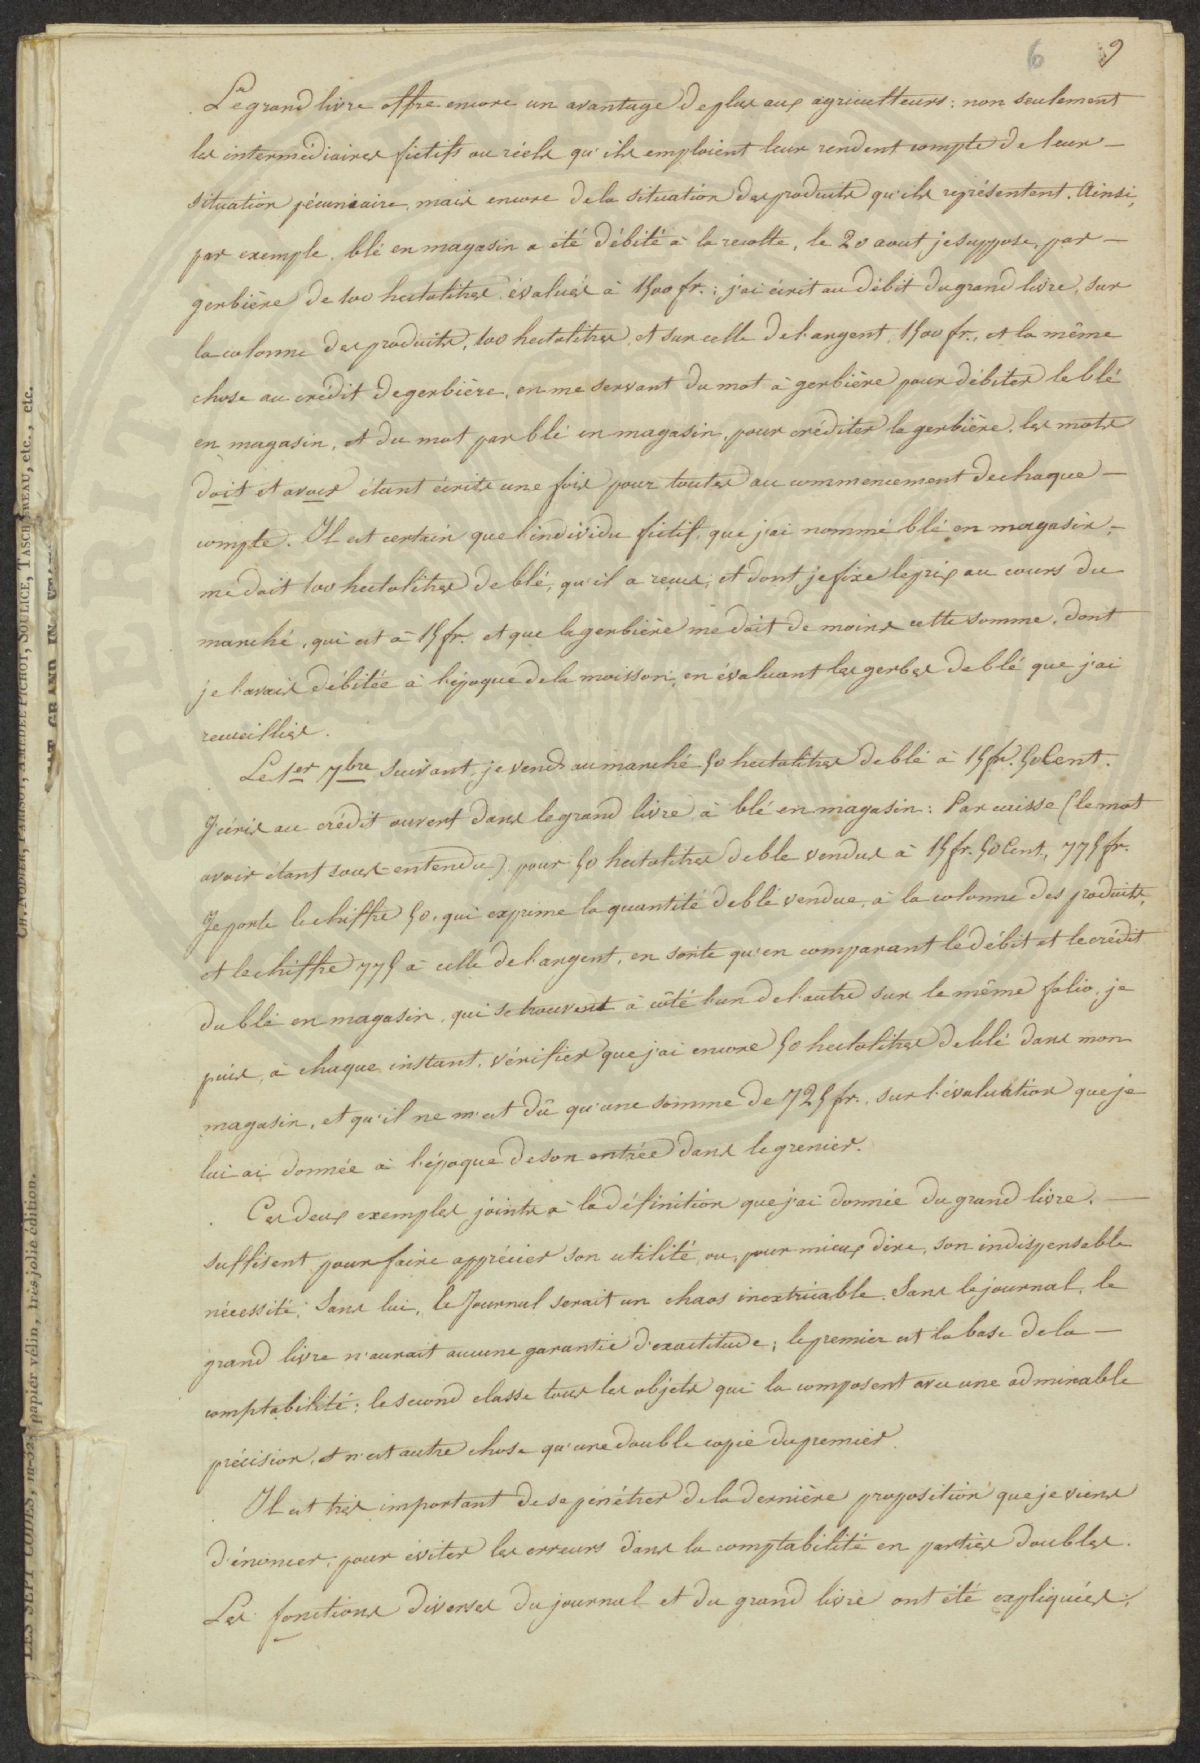 6 9
Le grand livre offre encore un avantage de plus aux agriculteurs : non seulement
les intermédiaires fictifs ou réels qu'ils emploient leur rendent compte de leur —
situation pécuniaire, mais encore de la situation des produits qu'ils représentent. Ainsi,
par exemple, blé en magasin a été débité à la récolte, le 20 aout je suppose, par —
gerbière de 100 hectolitres évalués à 1500 fr. ; j'ai écrit au débit du grand livre, sur
la colonne des produits, 100 hectolitres, et sur celle de l'argent, 1500 fr., et la même
chose au crédit de gerbière, en me servant du mot à gerbière pour débiter le blé
en magasin, et du mot par blé en magasin, pour créditer la gerbière, les mots
doit et avoir étant écrits une fois pour toutes au commencement de chaque —
compte. Il est certain que l'individu fictif, que j'ai nommé blé en magasin, —
me doit 100 hectolitres de blé, qu'il a reçus, et dont je fixe le prix au cours du
marché, qui est à 15 fr. et que la gerbière me doit de moins cette somme, dont
je l'avais débitée à l'époque de la moisson, en évaluant les gerbes de blé que j'ai
recueillies.
Le 1er 7bre suivant, je vends au marché 50 hectolitres de blé à 15 fr. 50 Cent.
J'écris au crédit ouvert dans le grand livre à blé en magasin : Par caisse (le mot
avoir étant sous-entendu), pour 50 hectolitres de blé vendus à 15 fr. 50 Cent, 775 fr.
Je porte le chiffre 50, qui exprime la quantité de blé vendue, à la colonne des produits,
et le chiffre 775 à celle de l'argent, en sorte qu'en comparant le débit et le crédit
du blé en magasin, qui se trouvent à côté l'un de l'autre sur le même folio, je
puis, à chaque instant, vérifier que j'ai encore 50 hectolitres de blé dans mon
magasin, et qu'il ne m'est dû qu'une somme de 725 fr. sur l'évaluation que je
lui ai donnée à l'époque de son entrée dans le grenier.
Ces deux exemples joints à la définition que j'ai donnée du grand livre, —
suffisent pour faire apprécier son utilité, ou, pour mieux dire, son indispensable
nécessité. Sans lui, le Journal serait un chaos inextricable. Sans le journal, le
grand livre n'aurait aucune garantie d'exactitude ; le premier est la base de la —
comptabilité ; le second classe tous les objets qui la composent avec une admirable
précision, et n'est autre chose qu'une double copie du premier.
Il est très important de se pénétrer de la dernière proposition que je viens
d'énoncer, pour éviter les erreurs dans la comptabilité en parties doubles.
Les fonctions diverses du journal et du grand livre ont été expliquées ;
CH. NODIER, PARISOT, AMÉDÉE PICHOT, SOULICE, TASCHEREAU, etc., etc.
GRAND IN
LES SEPT CODES, in-32, papier vélin, très jolie édition.